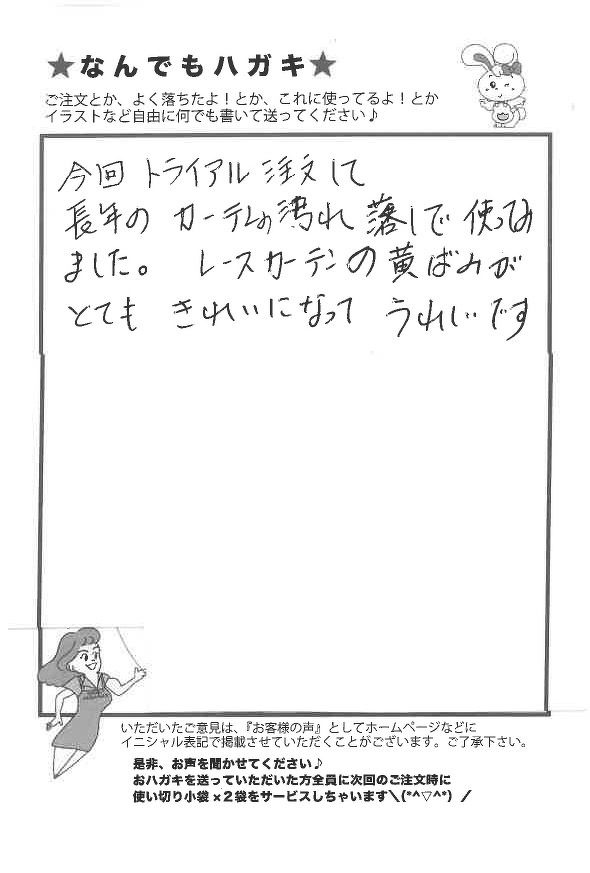 ★なんでもハガキ★
ご注文とか、よく落ちたよ！とか、これに使ってるよ！とか
イラストなど自由に何でも書いて送ってください♪
今回 トライアル 注文して
長年の カーテンの汚れ 落しで 使ってみ
ました。 レースカーテンの黄ばみが
とても きれいになって うれしいです
いただいたご意見は、『お客様の声』としてホームページなどに
イニシャル表記で掲載させていただくことがございます。ご了承下さい。
是非、お声を聞かせてください♪
おハガキを送っていただいた方全員に次回のご注文時に
使い切り小袋×2袋をサービスしちゃいます＼(*^▽^*)／